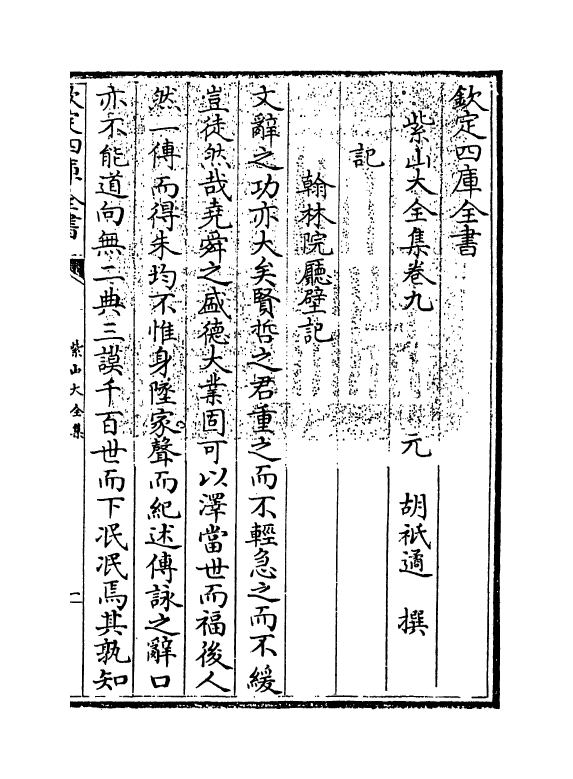 欽定四庫全書
紫山大全集卷九 元 胡祇遹 撰
記
翰林院廳壁記
文辭之功亦大矣賢哲之君重之而不輕急之而不緩
豈徒然哉堯舜之盛德大業固可以澤當世而福後人
然一傳而得朱均不惟身墜家聲而紀述傳詠之辭口
亦不能道向無二典三謨千百世而下泯泯焉其孰知
欽定四庫全書
紫山大全集
一